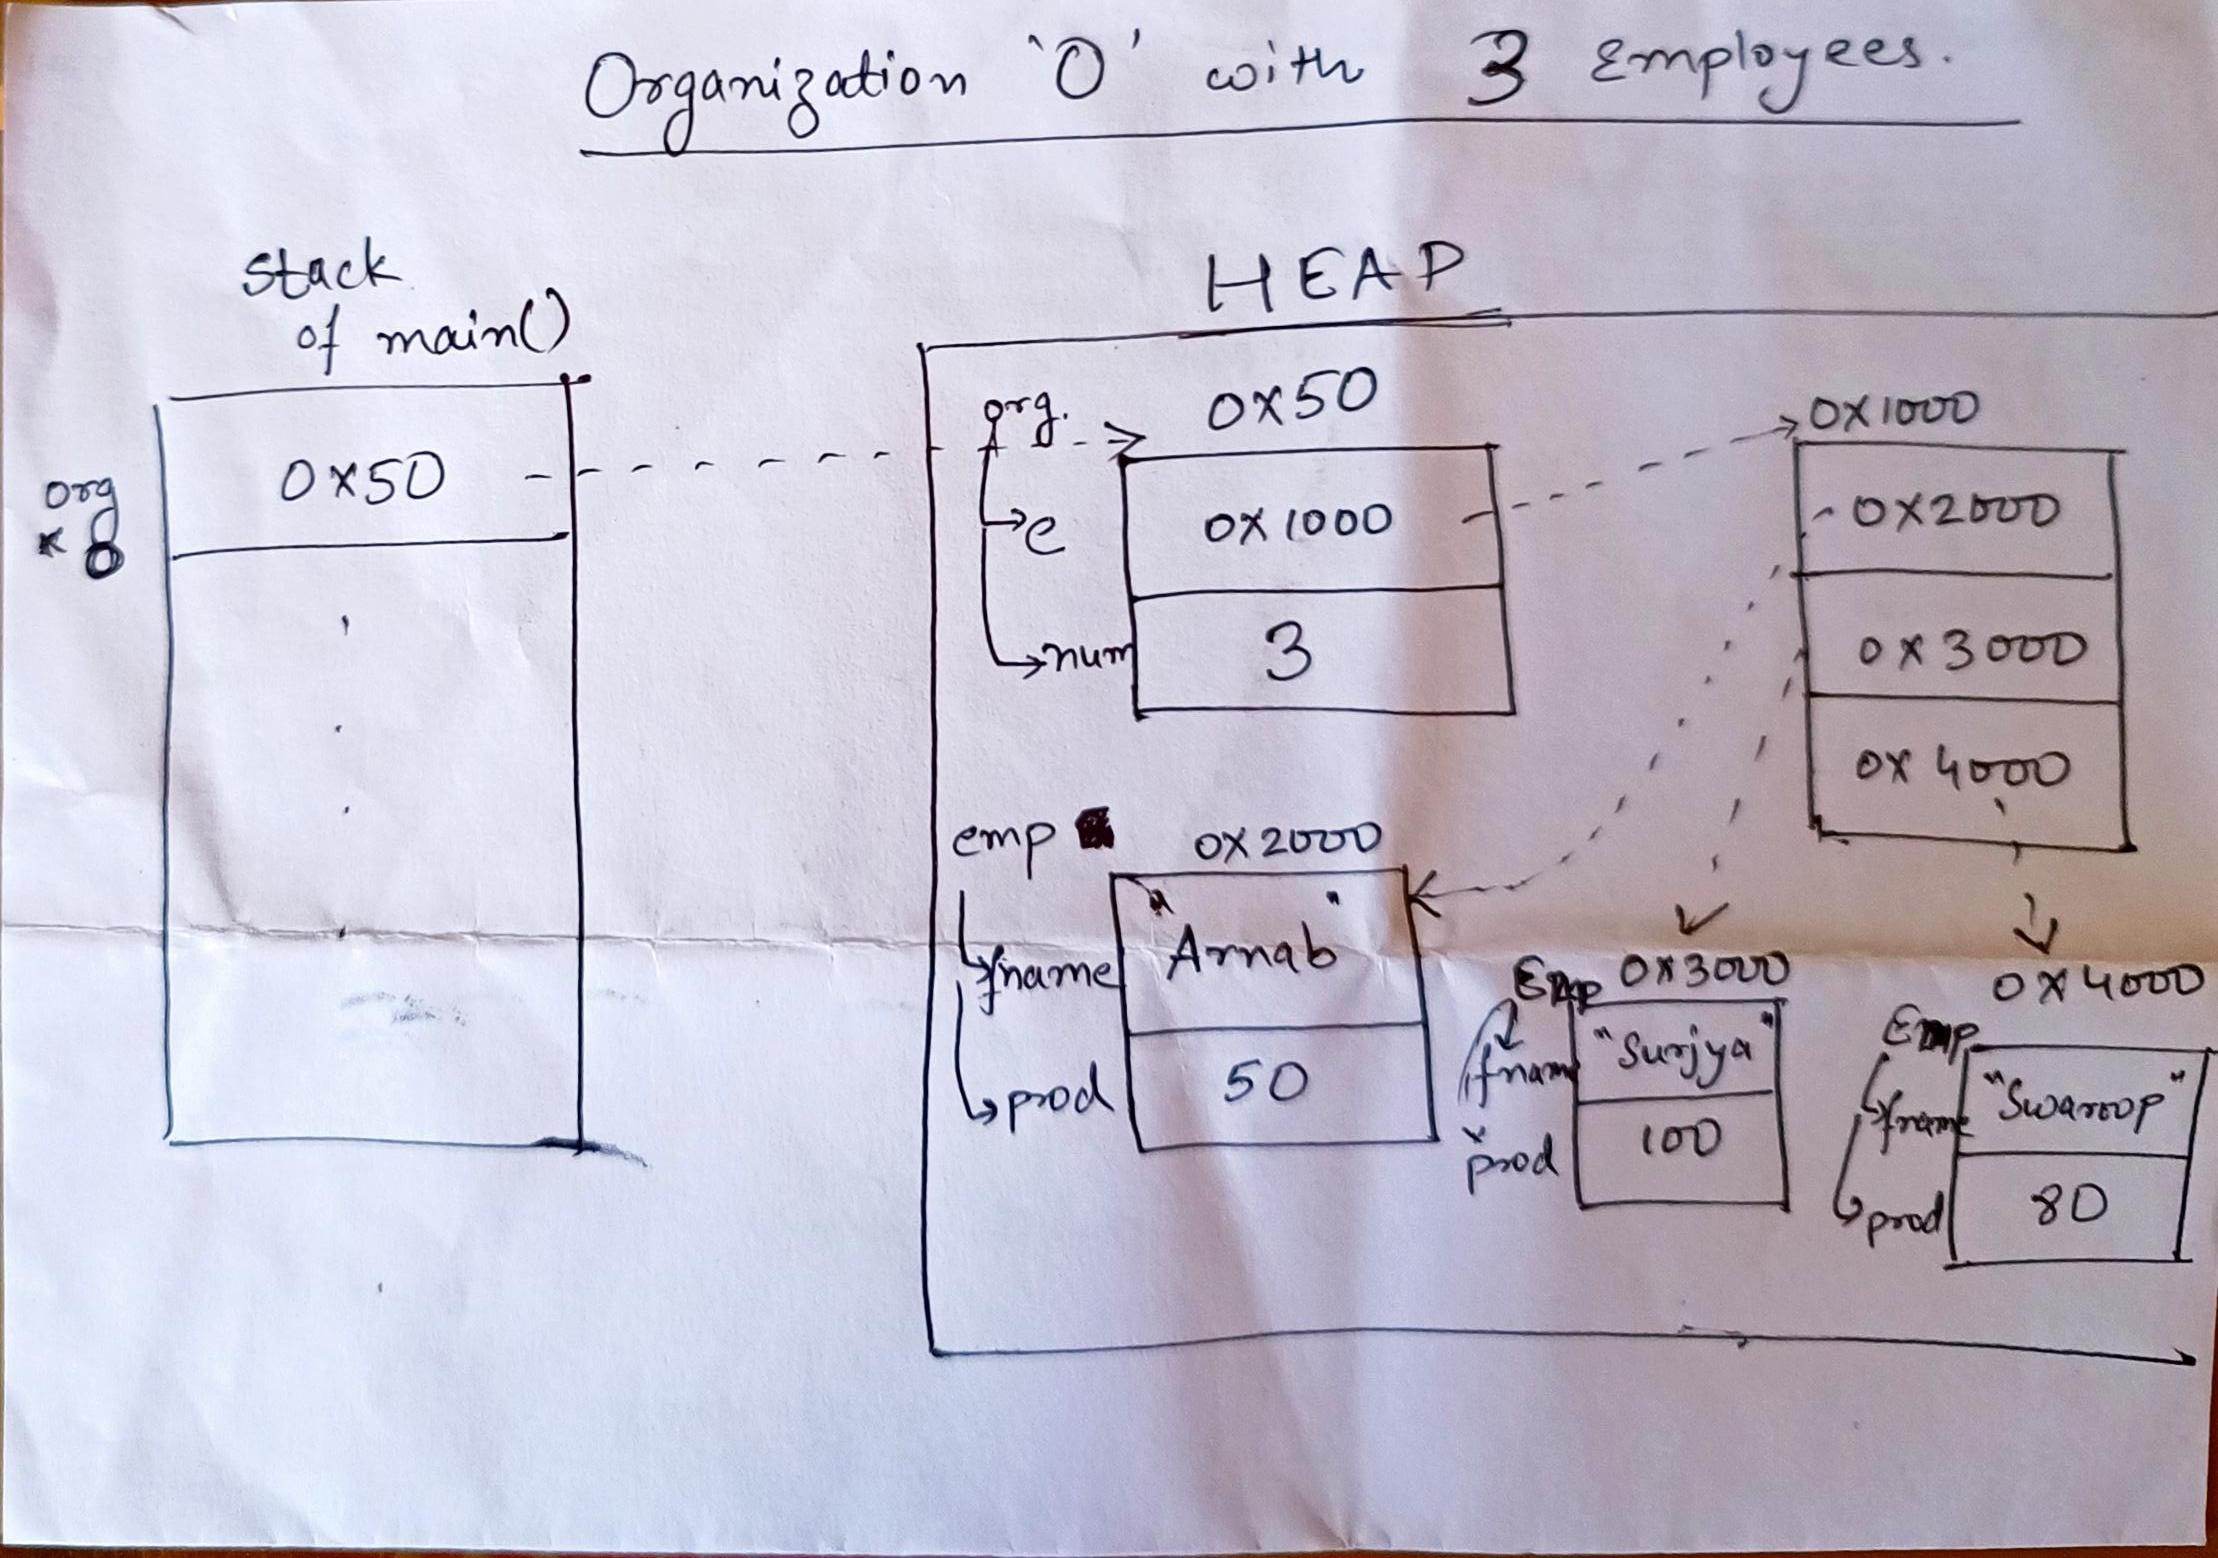 Organization 'O' with 3 Employees.
Stack
of main()
HEAP
org
* O
0x50
org.
0x50
e
0x1000
num
3
0x1000
0x2000
0x3000
0x4000
emp
0x2000
fname
"Arnab"
prod
50
Emp
0x3000
fname
"Surjya"
prod
100
0x4000
Emp
fname
"Swaroop"
prod
80